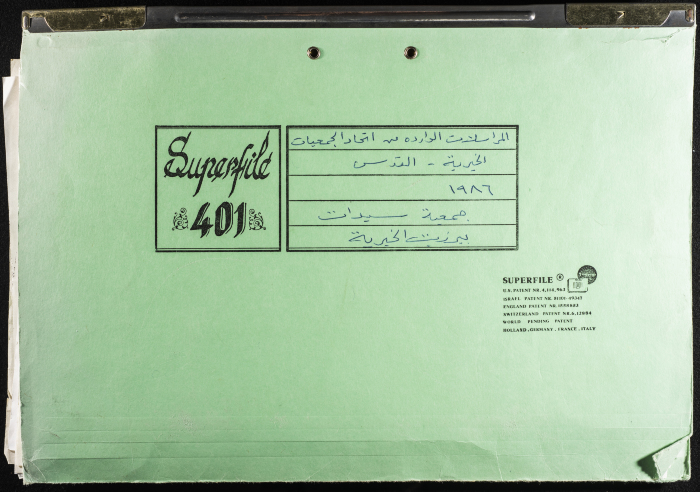 Superfile
401
المراسلات الوارده من اتحاد الجمعيات
الخيرية - القدس
١٩٨٦
جمعية سيدات
بيرزيت الخيرية
SUPERFILE ®
U.S. PATENT NR. 4,114,962
ISRAEL PATENT NR.
ENGLAND PATENT NR.
SWITZERLAND PATENT NR.
WORLD PENDING PATENT
HOLLAND.GERMANY.FRANCE.ITALY